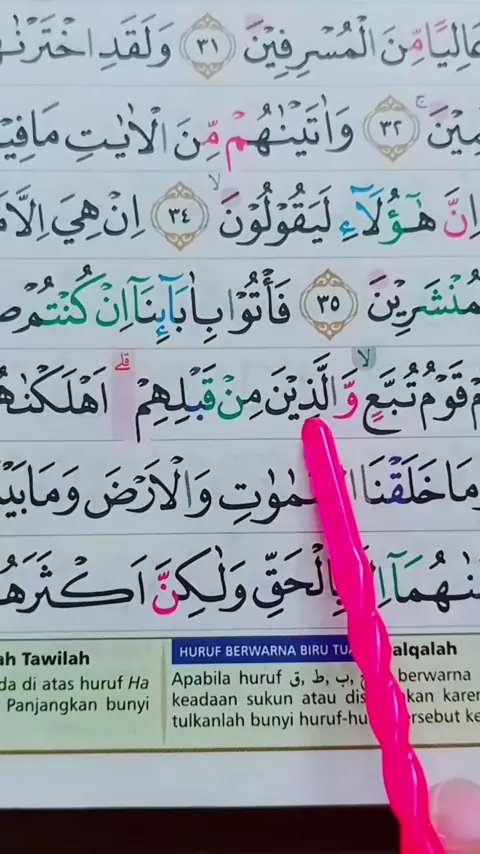 مِّنَ الْمُسْرِفِيْنَ ٣١ وَلَقَدِ اخْتَرْنٰ
٣٢ وَاٰتَيْنٰهُمْ مِّنَ الْاٰيٰتِ مَا فِيْ
اِنَّ هٰٓؤُلَاۤءِ لَيَقُوْلُوْنَ ۙ ٣٤ اِنْ هِيَ اِلَّا
٣٥ فَأْتُوْا بِاٰبَاۤىِٕنَآ اِنْ كُنْتُمْ
قَوْمُ تُبَّعٍۙ وَّالَّذِيْنَ مِنْ قَبْلِهِمْۗ اَهْلَكْنٰهُ
مَا خَلَقْنَا وَالْاَرْضَ وَمَا
وَلٰكِنَّ اَكْثَرَهُ
ah Tawilah
da di atas huruf Ha
Panjangkan bunyi
HURUF BERWARNA BIRU TUA alqalah
Apabila huruf ق, ط, ب, berwarna
keadaan sukun atau dis kan karen
tulkanlah bunyi huruf-hu ersebut ke